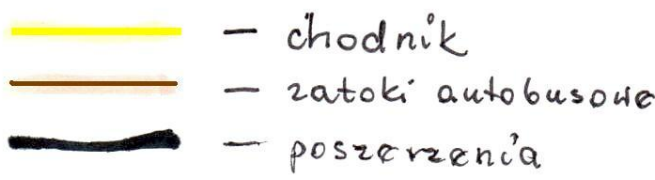 – chodnik
– zatoki autobusowe
– poszerzenia